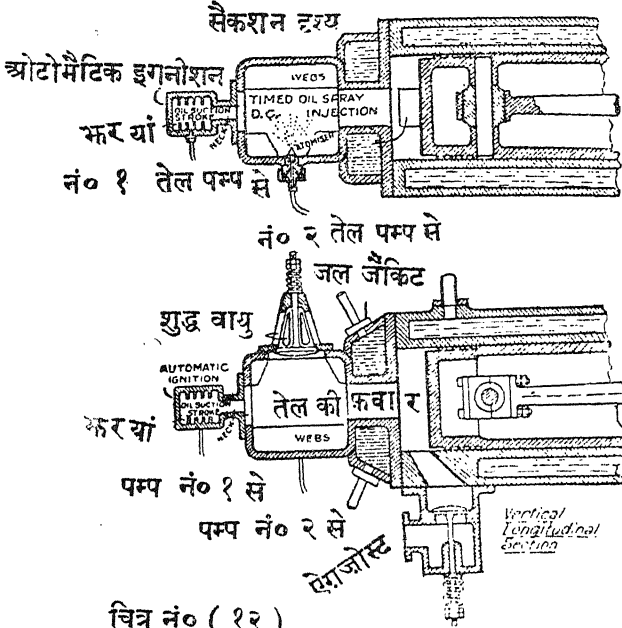 सैकशन दृश्य
ओटोमैटिक इगनीशन
WEBS
OIL SUCTION
STROKE
TIMED OIL SPRAY
INJECTION
ATOMISER
NECK
झरयां
नं० १ तेल पम्प से
नं० २ तेल पम्प से
जल जैंकिट
शुद्ध वायु
AUTOMATIC
IGNITION
OIL SUCTION
STROKE
NECK
तेल की फ़वार
WEBS
झरयां
पम्प नं० १ से
पम्प नं० २ से
ऐग़ज़ोस्ट
Vertical
Longitudinal
Section
चित्र नं० ( १२ )